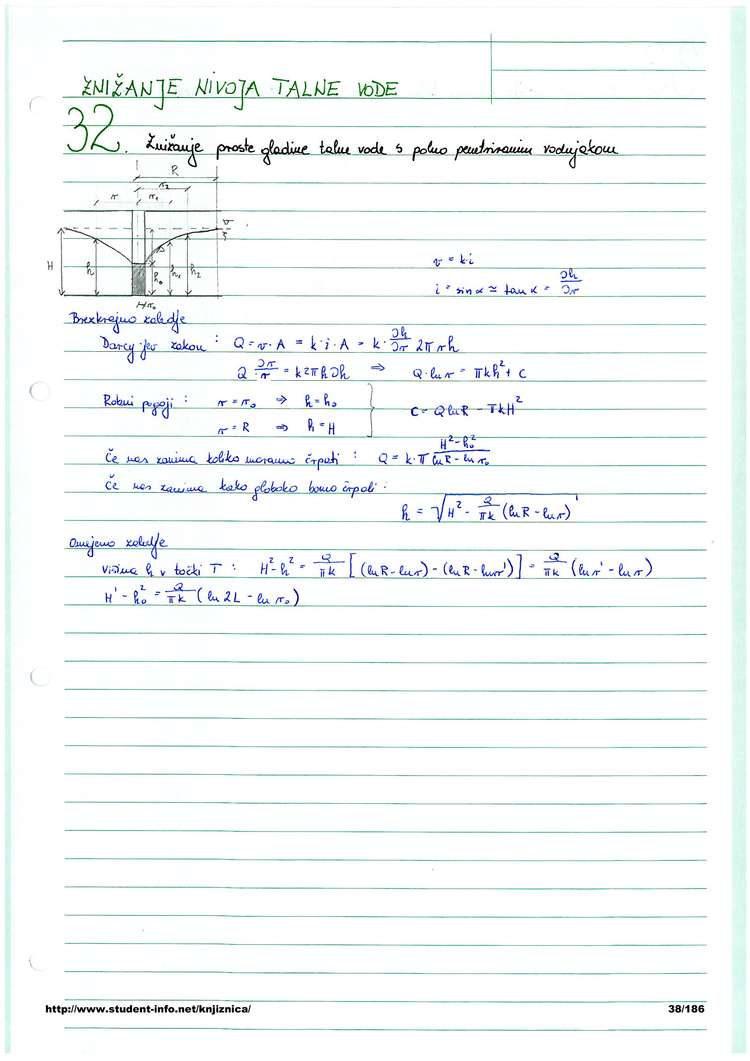 ZNIŽANJE NIVOJA TALNE VODE
32. Znižanje proste gladine talne vode s polno penetriranim vodnjakom
R
r2
r r1
H h s h0 h1 h2
r0
v = k·i
i = sin α ≃ tan α = ∂h/∂r
Brezkrajno zaledje
Darcy-jev zakon : Q = v·A = k·i·A = k·∂h/∂r 2πrh
Q ∂r/r = k2πh∂h ⇒ Q·ln r = πkh² + C
Robni pogoji : r = r0 ⇒ h = h0
r = R ⇒ h = H
C = Q ln R - πkH²
Če nas zanima koliko moramo črpati : Q = k·π (H² - h0²)/(ln R - ln r0)
Če nas zanima kako globoko bomo črpali :
h = √(H² - Q/πk (ln R - ln r))
Omejeno zaledje
višina h v točki T : H² - h² = Q/πk [(ln R - ln r) - (ln R - ln r')] = Q/πk (ln r' - ln r)
H' - h0² = Q/πk (ln 2L - ln r0)
http://www.student-info.net/knjiznica/ 38/186